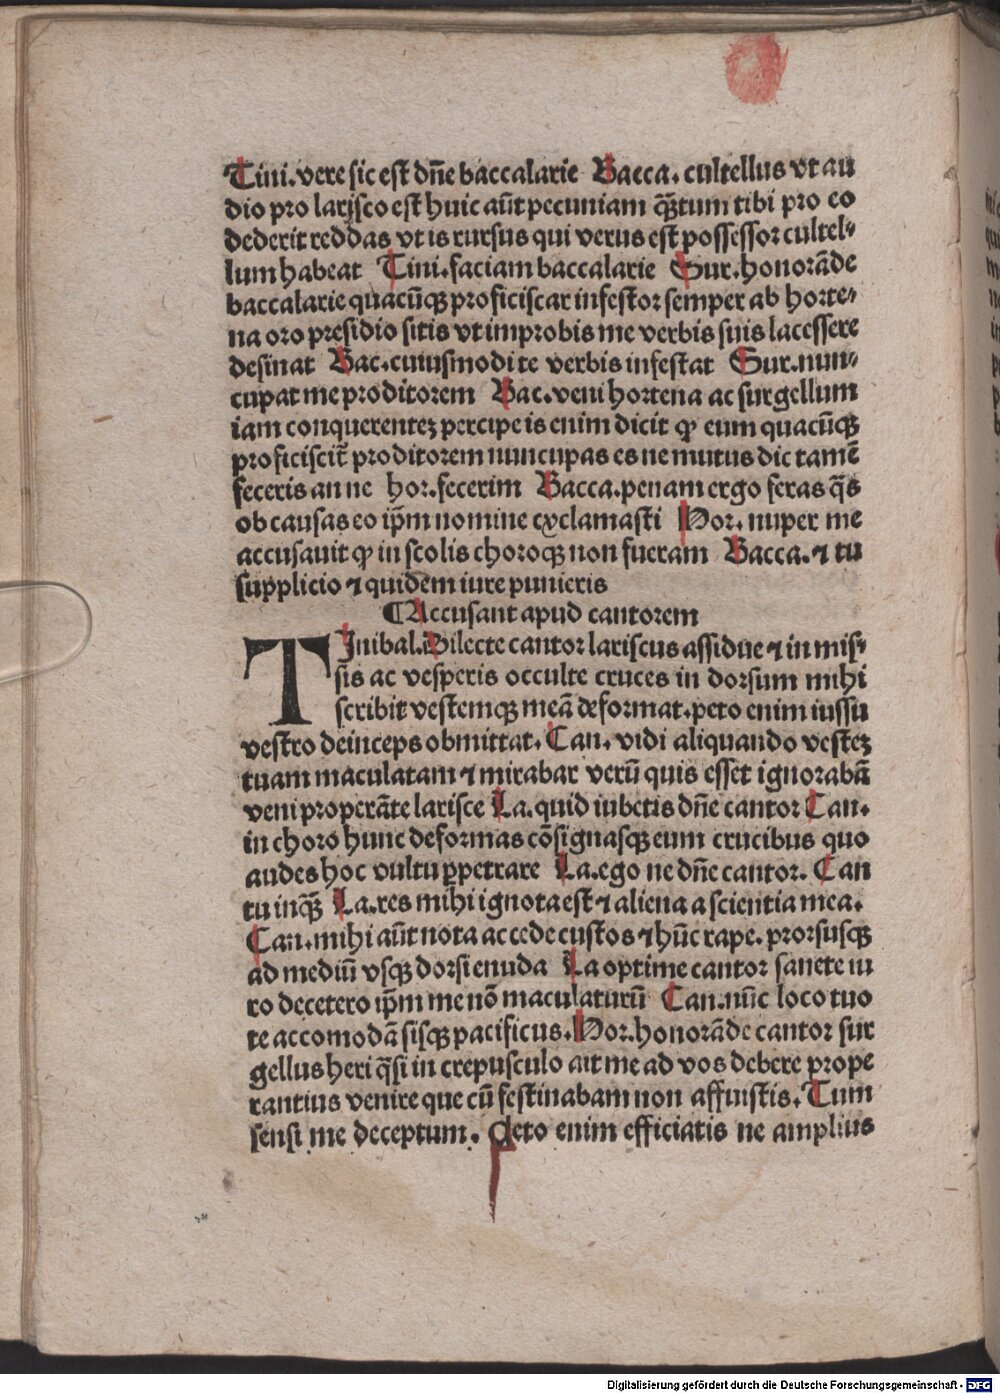 Tini. vere sic est dn̄e baccalarie Bacca. cultellus vt au
dio pro larisco est huic aūt pecuniam q̄ꝫtum tibi pro eo
dederit reddas vt is rursus qui verus est possessor cultel⸗
lum habeat Tini. faciam baccalarie Sur. honorāde
baccalarie quacūqꝫ proficiscar infestor semper ab horte⸗
na oro presidio sitis vt improbis me verbis suis lacessere
desinat Bac. cuiusmodi te verbis infestat Sur. nun⸗
cupat me proditorem Bac. veni hortena ac surgellum
iam conquerenteꝫ percipe is enim dicit ꝙ eum quacūqꝫ
proficiscit᷑ proditorem nuncupas es ne mutus dic tamē
feceris an ne hor. fecerim Bacca. penam ergo feras q̄s
ob causas eo ip̄m nomine exclamasti Hor. nuper me
accusauit ꝙ in scolis choroqꝫ non fueram Bacca. ⁊ tu
supplicio ⁊ quidem iure punieris
¶Accusant apud cantorem
TInibal. Dilecte cantor lariscus assidue ⁊ in mis⸗
sis ac vesperis occulte cruces in dorsum mihi
scribit vestemqꝫ meā deformat. peto enim iussu
vestro deinceps obmittat. Can. vidi aliquando vesteꝫ
tuam maculatam ⁊ mirabar verū quis esset ignorabā
veni properāte larisce La. quid iubetis dn̄e cantor Can.
in choro hunc deformas cōsignasqꝫ eum crucibus quo
audes hoc vultu ꝑpetrare La. ego ne dn̄e cantor. Can
tu inqꝫ̄ La. res mihi ignota est ⁊ aliena a scientia mea.
Can. mihi aūt nota accede custos ⁊ hūc rape. prorsusqꝫ
ad mediū vsqꝫ dorsi enuda La optime cantor sancte iu
ro decetero ip̄m me nō maculaturū Can. nūc loco tuo
te accomodā sisqꝫ pacificus. Hor. honorāde cantor sur
gellus heri q̄si in crepusculo ait me ad vos debere prope
rantius venire que cū festinabam non affuistis. Tum
sensi me deceptum. Peto enim efficiatis ne amplius
Digitalisierung gefördert durch die Deutsche Forschungsgemeinschaft - DFG